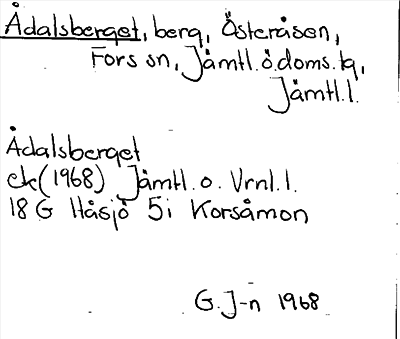 Ådalsberget, berg, Österåsen,
Fors sn, Jämtl.ö.doms.tg,
Jämtl.l.
Ådalsberget
ek(1968) Jämtl.o. Vrnl.l.
18 G Håsjö 5i Korsåmon
G.J-n 1968